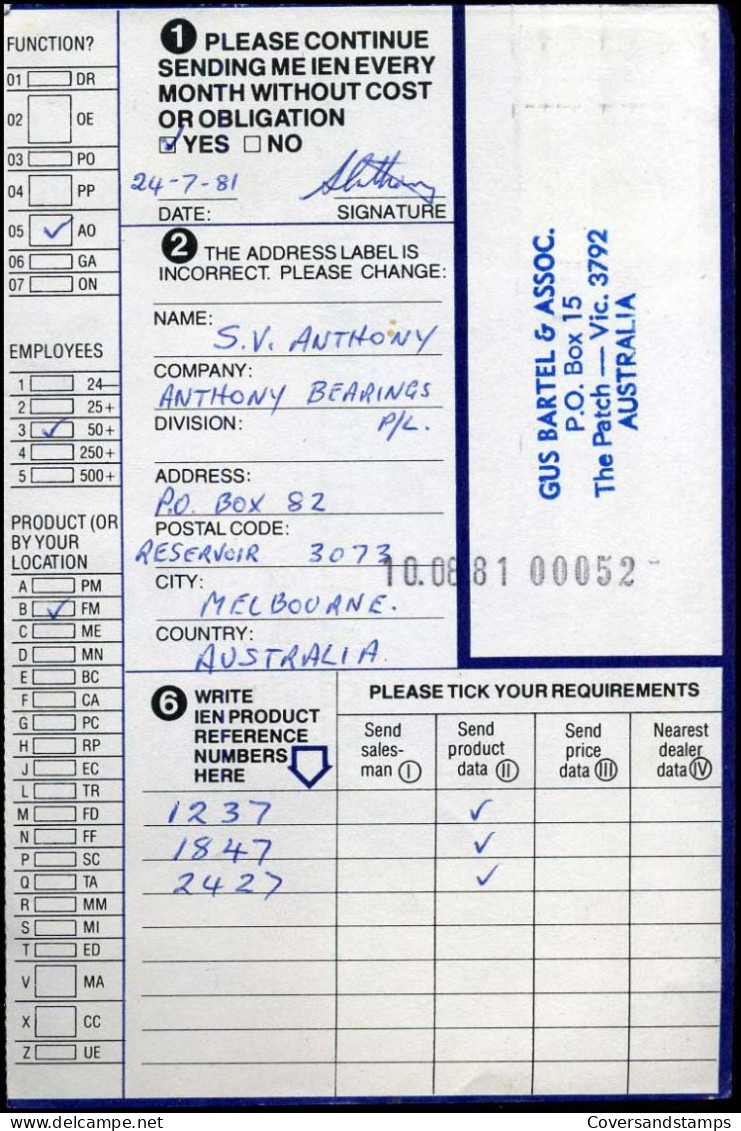 FUNCTION?
01 DR
02 OE
03 PO
04 PP
05 ✓ AO
06 GA
07 ON
EMPLOYEES
1 24—
2 25+
3 ✓ 50+
4 250+
5 500+
PRODUCT (OR
BY YOUR
LOCATION
A PM
B ✓ FM
C ME
D MN
E BC
F CA
G PC
H RP
J EC
L TR
M FD
N FF
P SC
Q TA
R MM
S MI
T ED
V MA
X CC
Z UE
1 PLEASE CONTINUE
SENDING ME IEN EVERY
MONTH WITHOUT COST
OR OBLIGATION
☑ YES ☐ NO
24-7-81 SAnthony
DATE: SIGNATURE
2 THE ADDRESS LABEL IS
INCORRECT. PLEASE CHANGE:
NAME:
S.V. ANTHONY
COMPANY:
ANTHONY BEARINGS
DIVISION: P/L.
ADDRESS:
P.O. BOX 82
POSTAL CODE:
RESERVOIR 3073
CITY:
MELBOURNE.
COUNTRY:
AUSTRALIA
GUS BARTEL & ASSOC.
P.O. Box 15
The Patch — Vic. 3792
AUSTRALIA
10.08 81 00052
6 WRITE
IEN PRODUCT
REFERENCE
NUMBERS
HERE
PLEASE TICK YOUR REQUIREMENTS
Send
sales-
man (I)
Send
product
data (II)
Send
price
data (III)
Nearest
dealer
data (IV)
1237 ✓
1847 ✓
2427 ✓
Coversandstamps